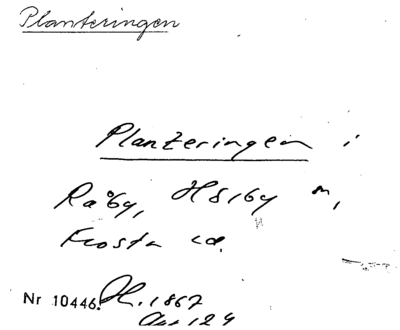 Planteringen
Planteringen i
Råby, Hsiby m,
Frosta
Nr 10446. H. 1867
124